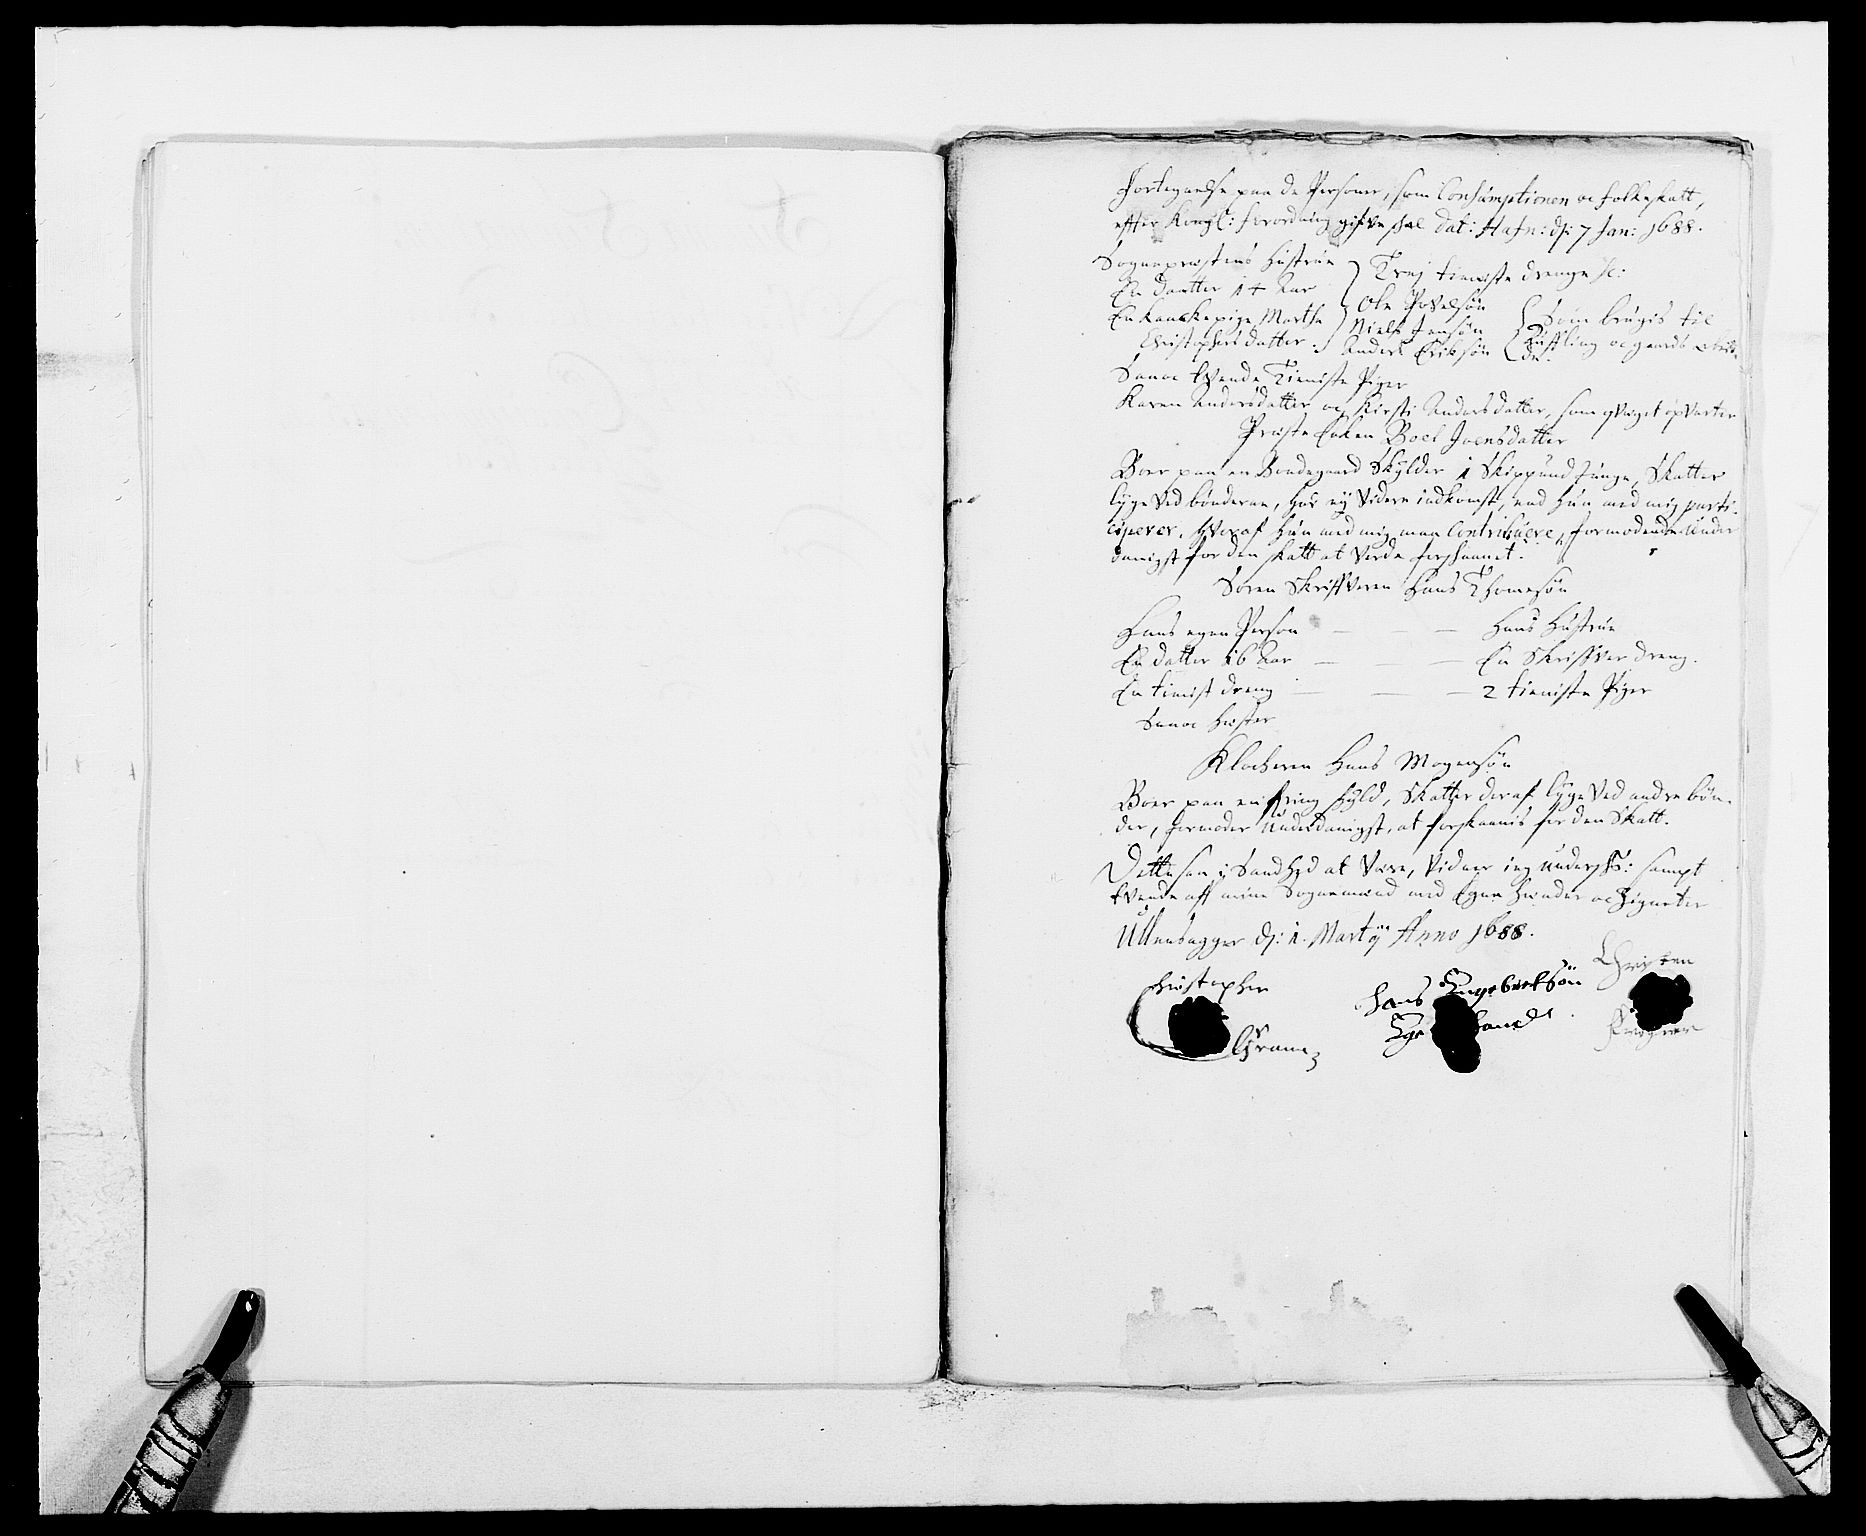 Fortegnelse paa de Personer, som Consumptionen oc folkeskatt,
effter Kongl: forordning gifve skal dat: Hafn: d: 7 Jan: 1688.
Sognepræstens Hustrue } Trej tieniste drenge
En daatter 14 Aar } Ole Povelsøn
En kaackepige Marthe } Niels Jensøn { Som brugis til
Christophersdatter. } Anders Erichsøn { oc gaards
Sampt tvende Tieniste Piger
Karen Andersdatter oc Kirsti Andersdatter, som qvæget opvarter
Præste Encken Boel Joensdatter
Boer paa en Bondegaard Skylder 1 Skippund tunge, Skatter
lige ved bønderne, har ej videre indkomst, end hun med mig parti-
ciperer, hvoraf hun med mig maa Contribuere, formodende under
danigst for den skatt at verde forskaanet.
Soren Skriffveren Hans Thomesøn
Hans egen Person — — — Hans Hustrue
En datter 16 Aar — — — En Skriffver dreng.
En tienist dreng — — — 2 tieniste Piger
Klockeren Hans Mogensøn
Boer paa en skyld, Skatter deraf lige ved andre bøn-
der, formoder Underdanigst, at forskaanis for den Skatt.
Dette saa i Sandhed at være, vidner ieg undersk: sampt
tvende aff mine Sognemænd med Egne hænder oc Zigneter
Ullensagger d: 1. Martij Anno 1688.
Christopher Hans Engebretsøn Christen
Grame Ege hand